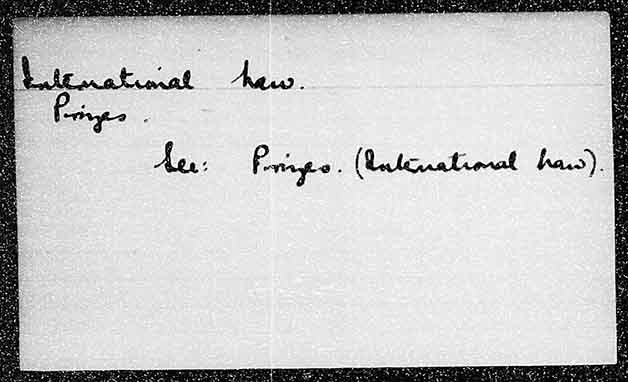 International Law.
Prizes.
See: Prizes. (International Law).